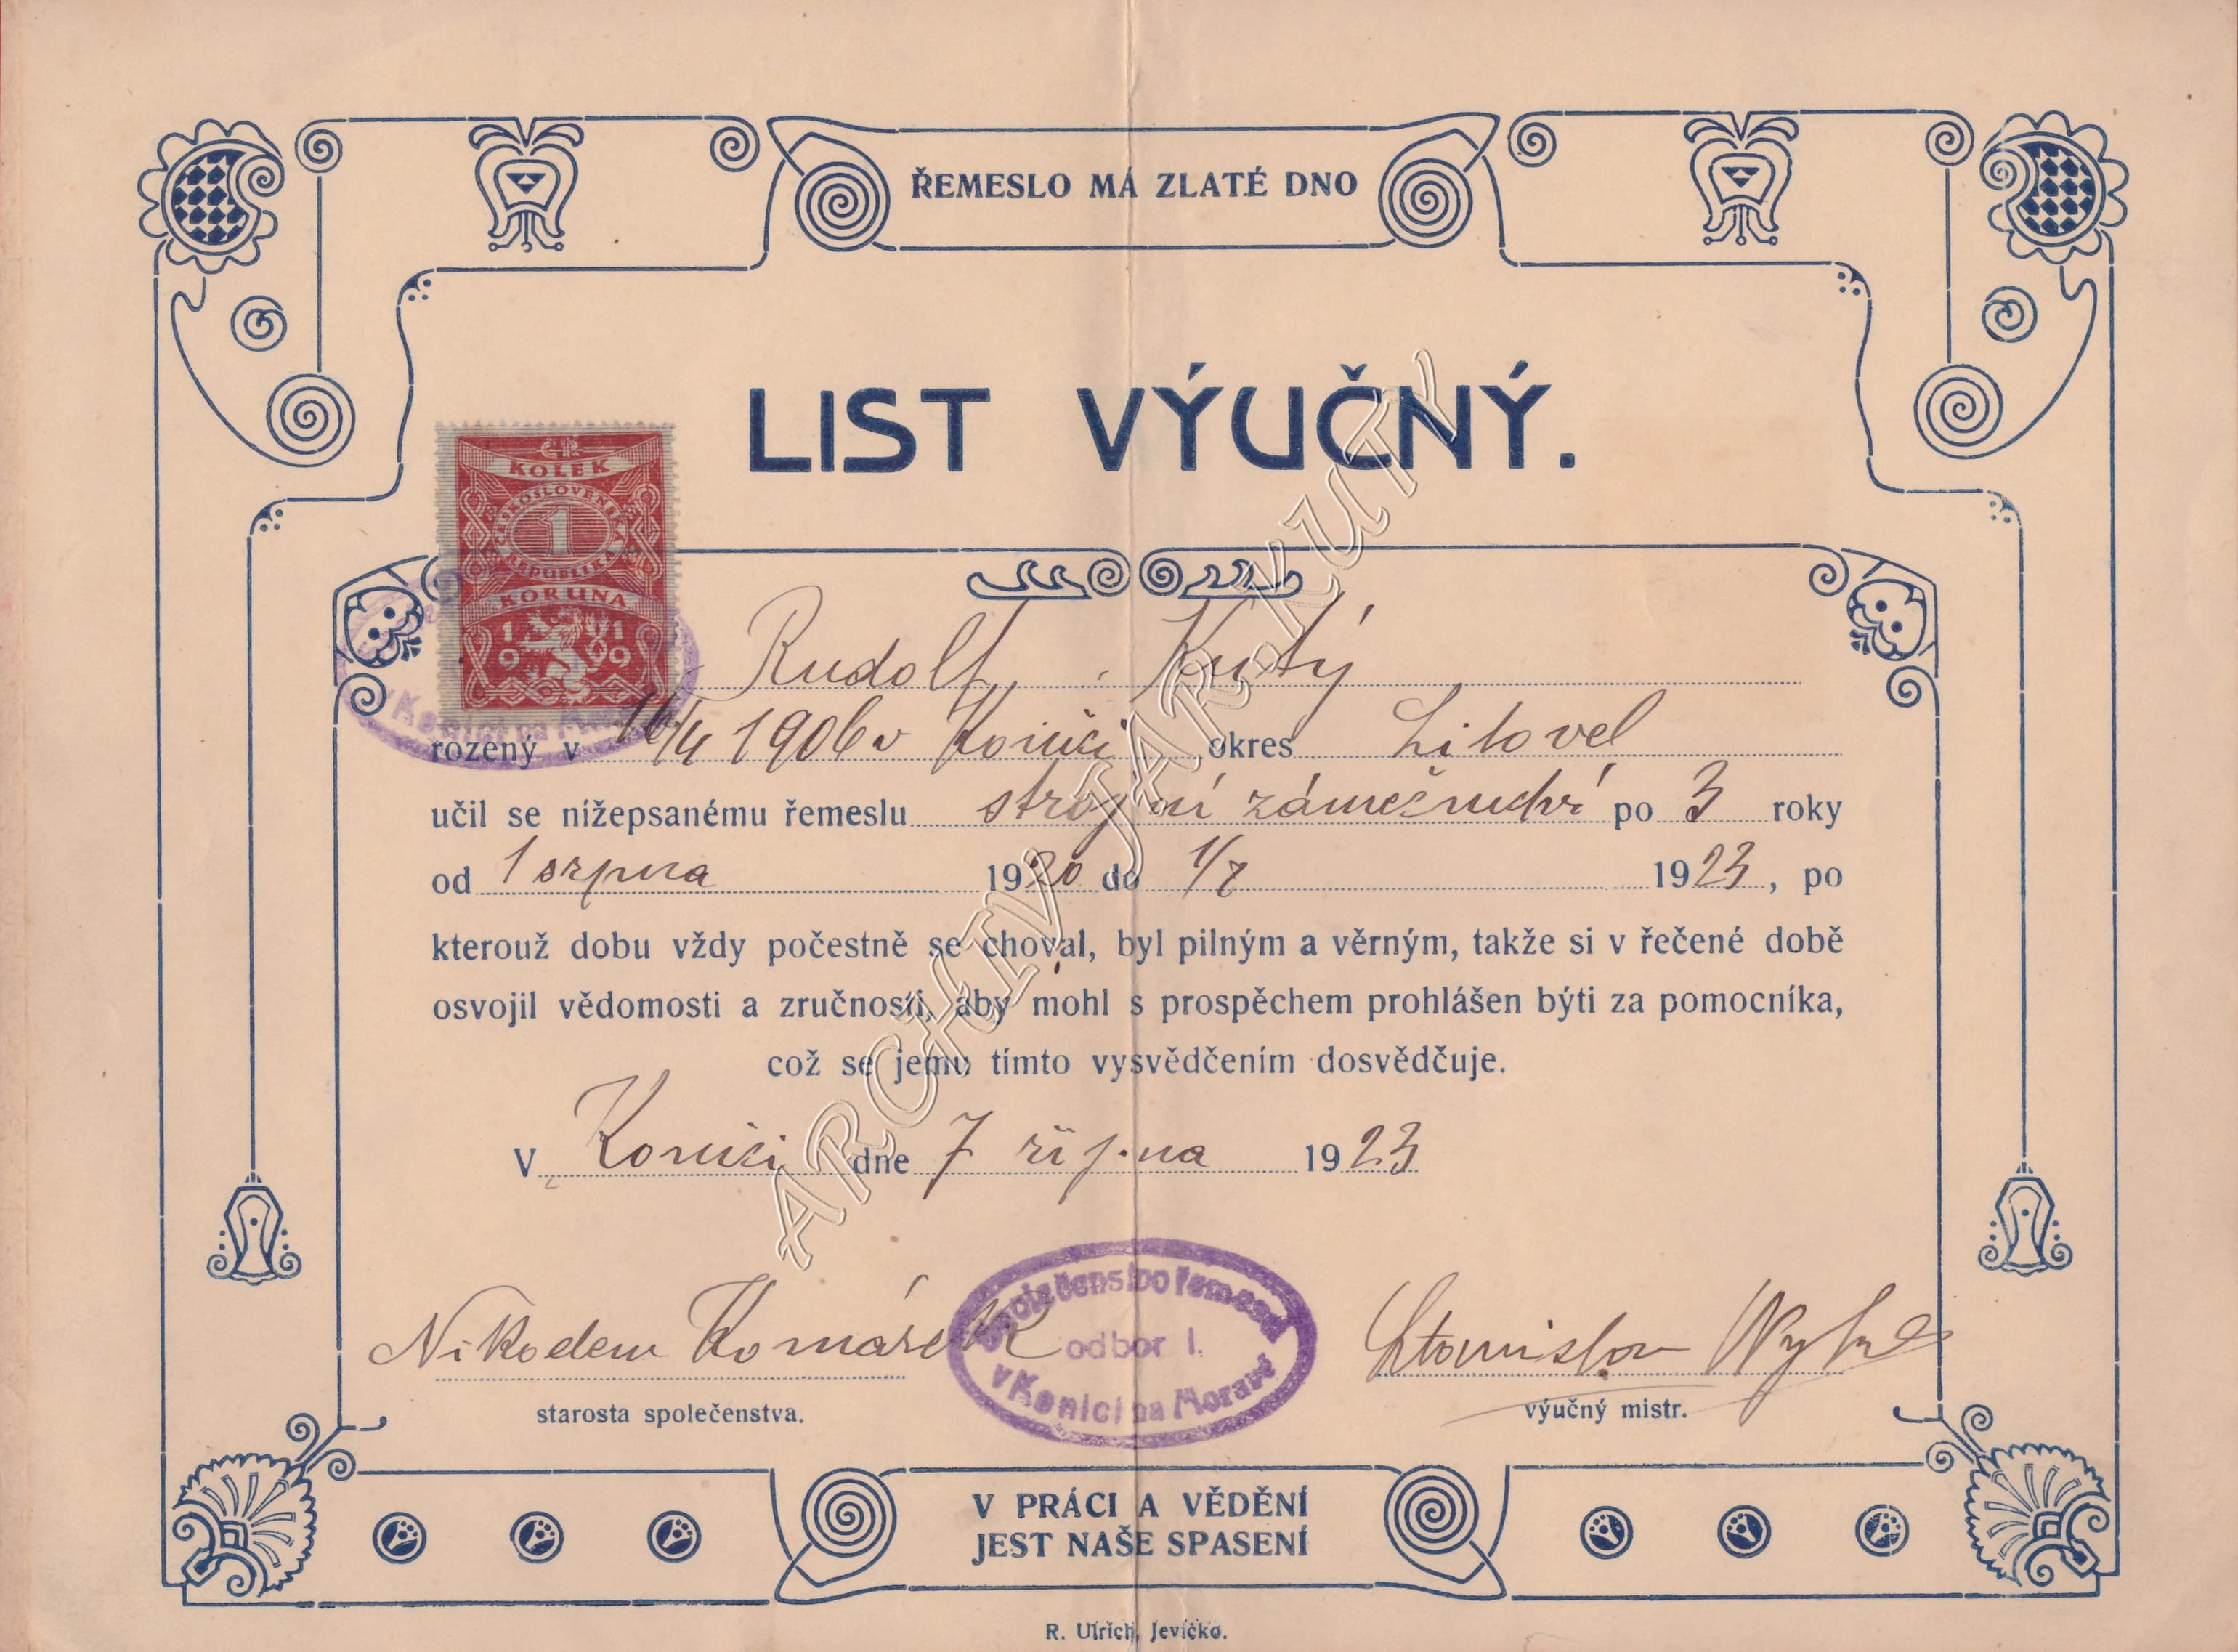 ŘEMESLO MÁ ZLATÉ DNO
LIST VÝUČNÝ.
ČR
KOLEK
ČESKOSLOVENSKÁ
1
REPUBLIKA
KORUNA
1919
Rudolf Kutý
rozený v 16/4 1906 v Konici okres Litovel
učil se nížepsanému řemeslu strojní zámečnictví po 3 roky
od 1 srpna 1920 do 1/8 1923, po
kterouž dobu vždy počestně se choval, byl pilným a věrným, takže si v řečené době
osvojil vědomosti a zručnosti, aby mohl s prospěchem prohlášen býti za pomocníka,
což se jemu tímto vysvědčením dosvědčuje.
V Konici dne 7 října 1923
Nikodem Komárek
starosta společenstva.
Společenstvo řemesel
odbor I.
v Konici na Moravě
Stanislav
výučný mistr.
V PRÁCI A VĚDĚNÍ
JEST NAŠE SPASENÍ
R. Ulrich, Jevíčko.
ARCHIV JAR.KUTÝ